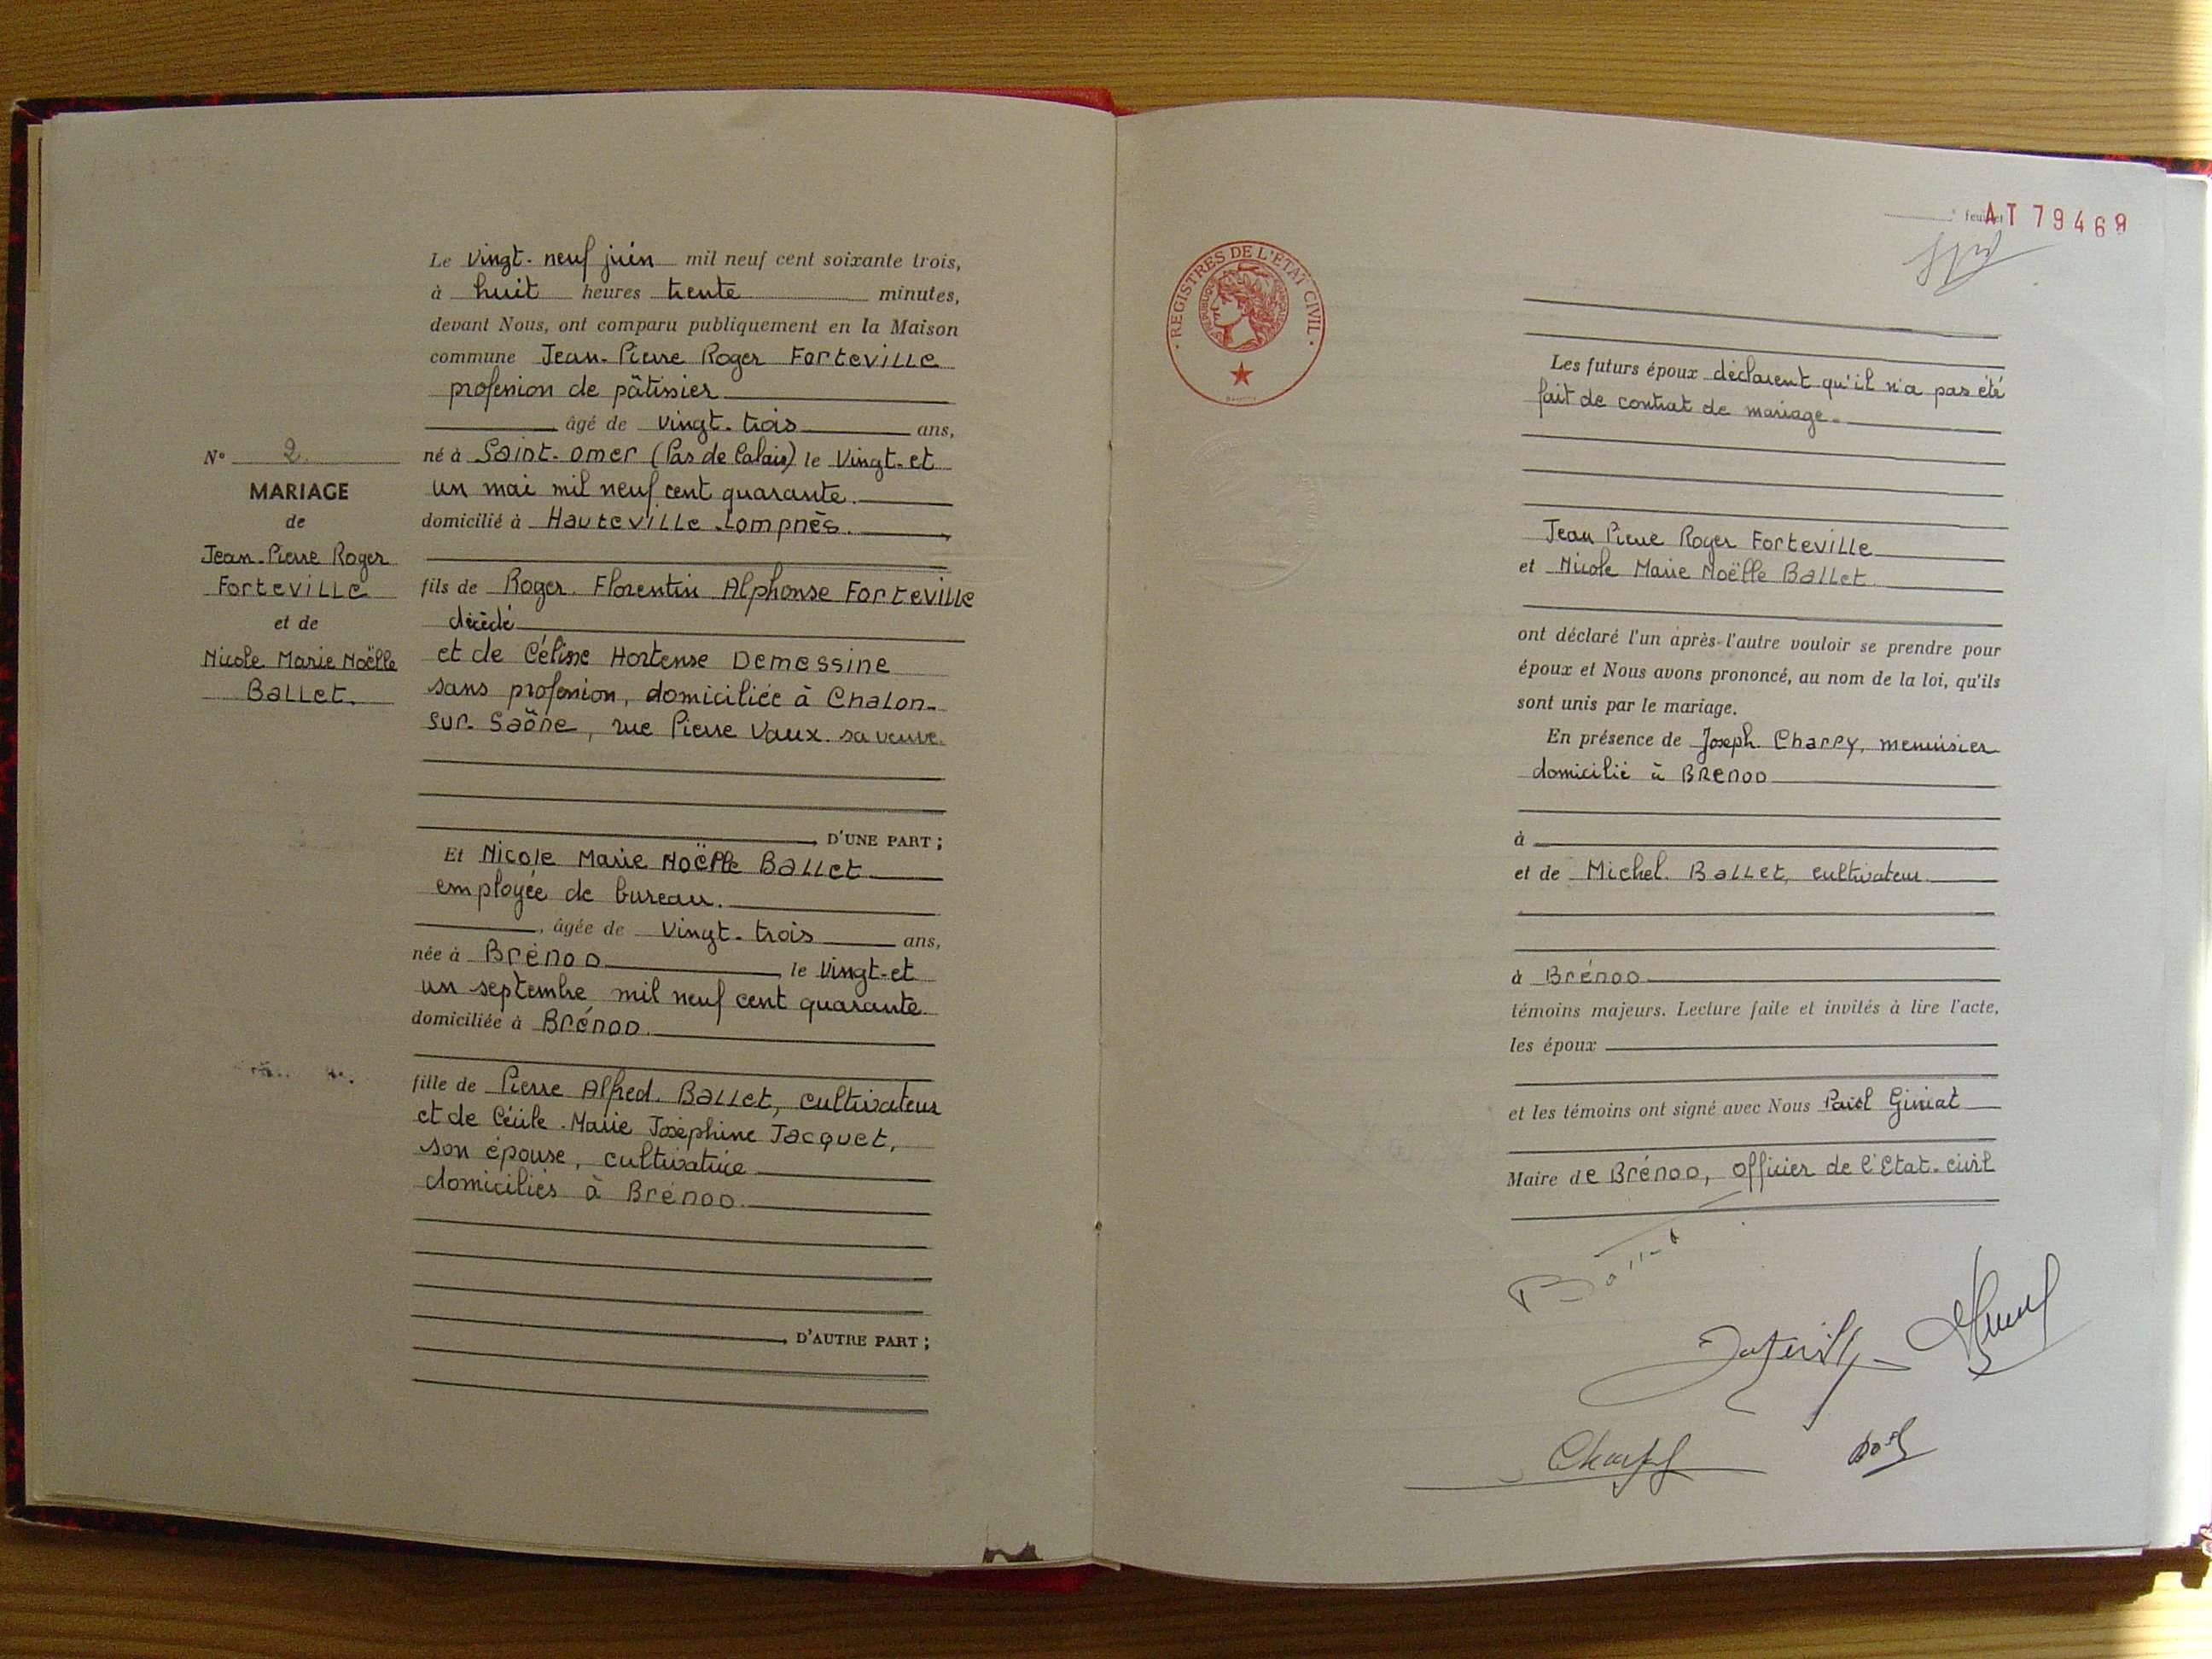 Le vingt-neuf juin mil neuf cent soixante trois,
à huit heures trente minutes,
devant Nous, ont comparu publiquement en la Maison
commune Jean-Pierre Roger Forteville
profession de pâtissier
âgé de vingt-trois ans,
né à Saint-Omer (Pas de Calais) le vingt-et
un mai mil neuf cent quarante.
domicilié à Hauteville-Lompnès.
fils de Roger Florentin Alphonse Forteville
décédé
et de Céline Hortense Demessine
sans profession, domiciliée à Chalon-
sur-Saône, rue Pierre Vaux. sa veuve.
D'UNE PART ;
Et Nicole Marie Noëlle Ballet
employée de bureau.
, âgée de vingt-trois ans,
née à Brénod, le vingt-et
un septembre mil neuf cent quarante.
domiciliée à Brénod.
fille de Pierre Alfred Ballet, cultivateur
et de Cécile Marie Joséphine Jacquet,
son épouse, cultivatrice
domiciliés à Brénod.
, D'AUTRE PART ;
N° 2.
MARIAGE
de
Jean-Pierre Roger
Forteville
et de
Nicole Marie Noëlle
Ballet.
REGISTRES DE L'ÉTAT CIVIL
feuillet
AT 79469
Les futurs époux déclarent qu'il n'a pas été
fait de contrat de mariage.
Jean Pierre Roger Forteville
et Nicole Marie Noëlle Ballet
ont déclaré l'un après l'autre vouloir se prendre pour
époux et Nous avons prononcé, au nom de la loi, qu'ils
sont unis par le mariage.
En présence de Joseph Charpy, menuisier
domicilié à Brénod
à
et de Michel Ballet, cultivateur
à Brénod
témoins majeurs. Lecture faite et invités à lire l'acte,
les époux
et les témoins ont signé avec Nous Paul Giniat
Maire de Brénod, officier de l'Etat-civil
Ballet
Forteville
Charpy